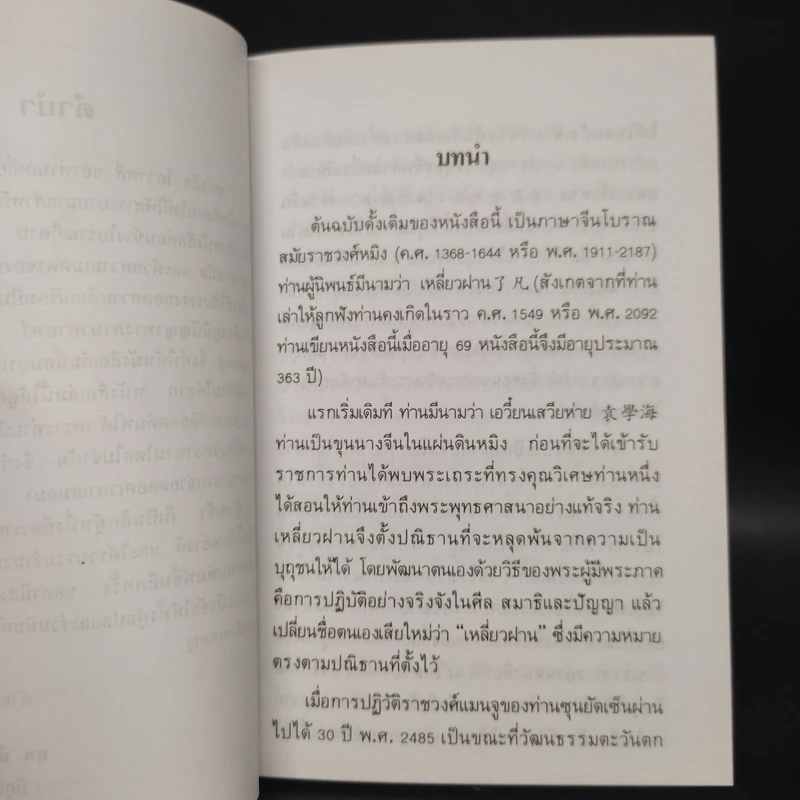 บทนำ
ต้นฉบับดั้งเดิมของหนังสือนี้ เป็นภาษาจีนโบราณ
สมัยราชวงศ์หมิง (ค.ศ. 1368-1644 หรือ พ.ศ. 1911-2187)
ท่านผู้นิพนธ์มีนามว่า เหลี่ยวฝาน 了凡 (สังเกตจากที่ท่าน
เล่าให้ลูกฟังท่านคงเกิดในราว ค.ศ. 1549 หรือ พ.ศ. 2092
ท่านเขียนหนังสือนี้เมื่ออายุ 69 หนังสือนี้จึงมีอายุประมาณ
363 ปี)
แรกเริ่มเดิมที ท่านมีนามว่า เอวี๋ยนเสวียห่าย 袁學海
ท่านเป็นขุนนางจีนในแผ่นดินหมิง ก่อนที่จะได้เข้ารับ
ราชการท่านได้พบพระเถระที่ทรงคุณวิเศษท่านหนึ่ง
ได้สอนให้ท่านเข้าถึงพระพุทธศาสนาอย่างแท้จริง ท่าน
เหลี่ยวฝานจึงตั้งปณิธานที่จะหลุดพ้นจากความเป็น
บุถุชนให้ได้ โดยพัฒนาตนเองด้วยวิธีของพระผู้มีพระภาค
คือการปฏิบัติอย่างจริงจังในศีล สมาธิและปัญญา แล้ว
เปลี่ยนชื่อตนเองเสียใหม่ว่า “เหลี่ยวฝาน” ซึ่งมีความหมาย
ตรงตามปณิธานที่ตั้งไว้
เมื่อการปฏิวัติราชวงศ์แมนจูของท่านซุนยัดเซ็นผ่าน
ไปได้ 30 ปี พ.ศ. 2485 เป็นขณะที่วัฒนธรรมตะวันตก